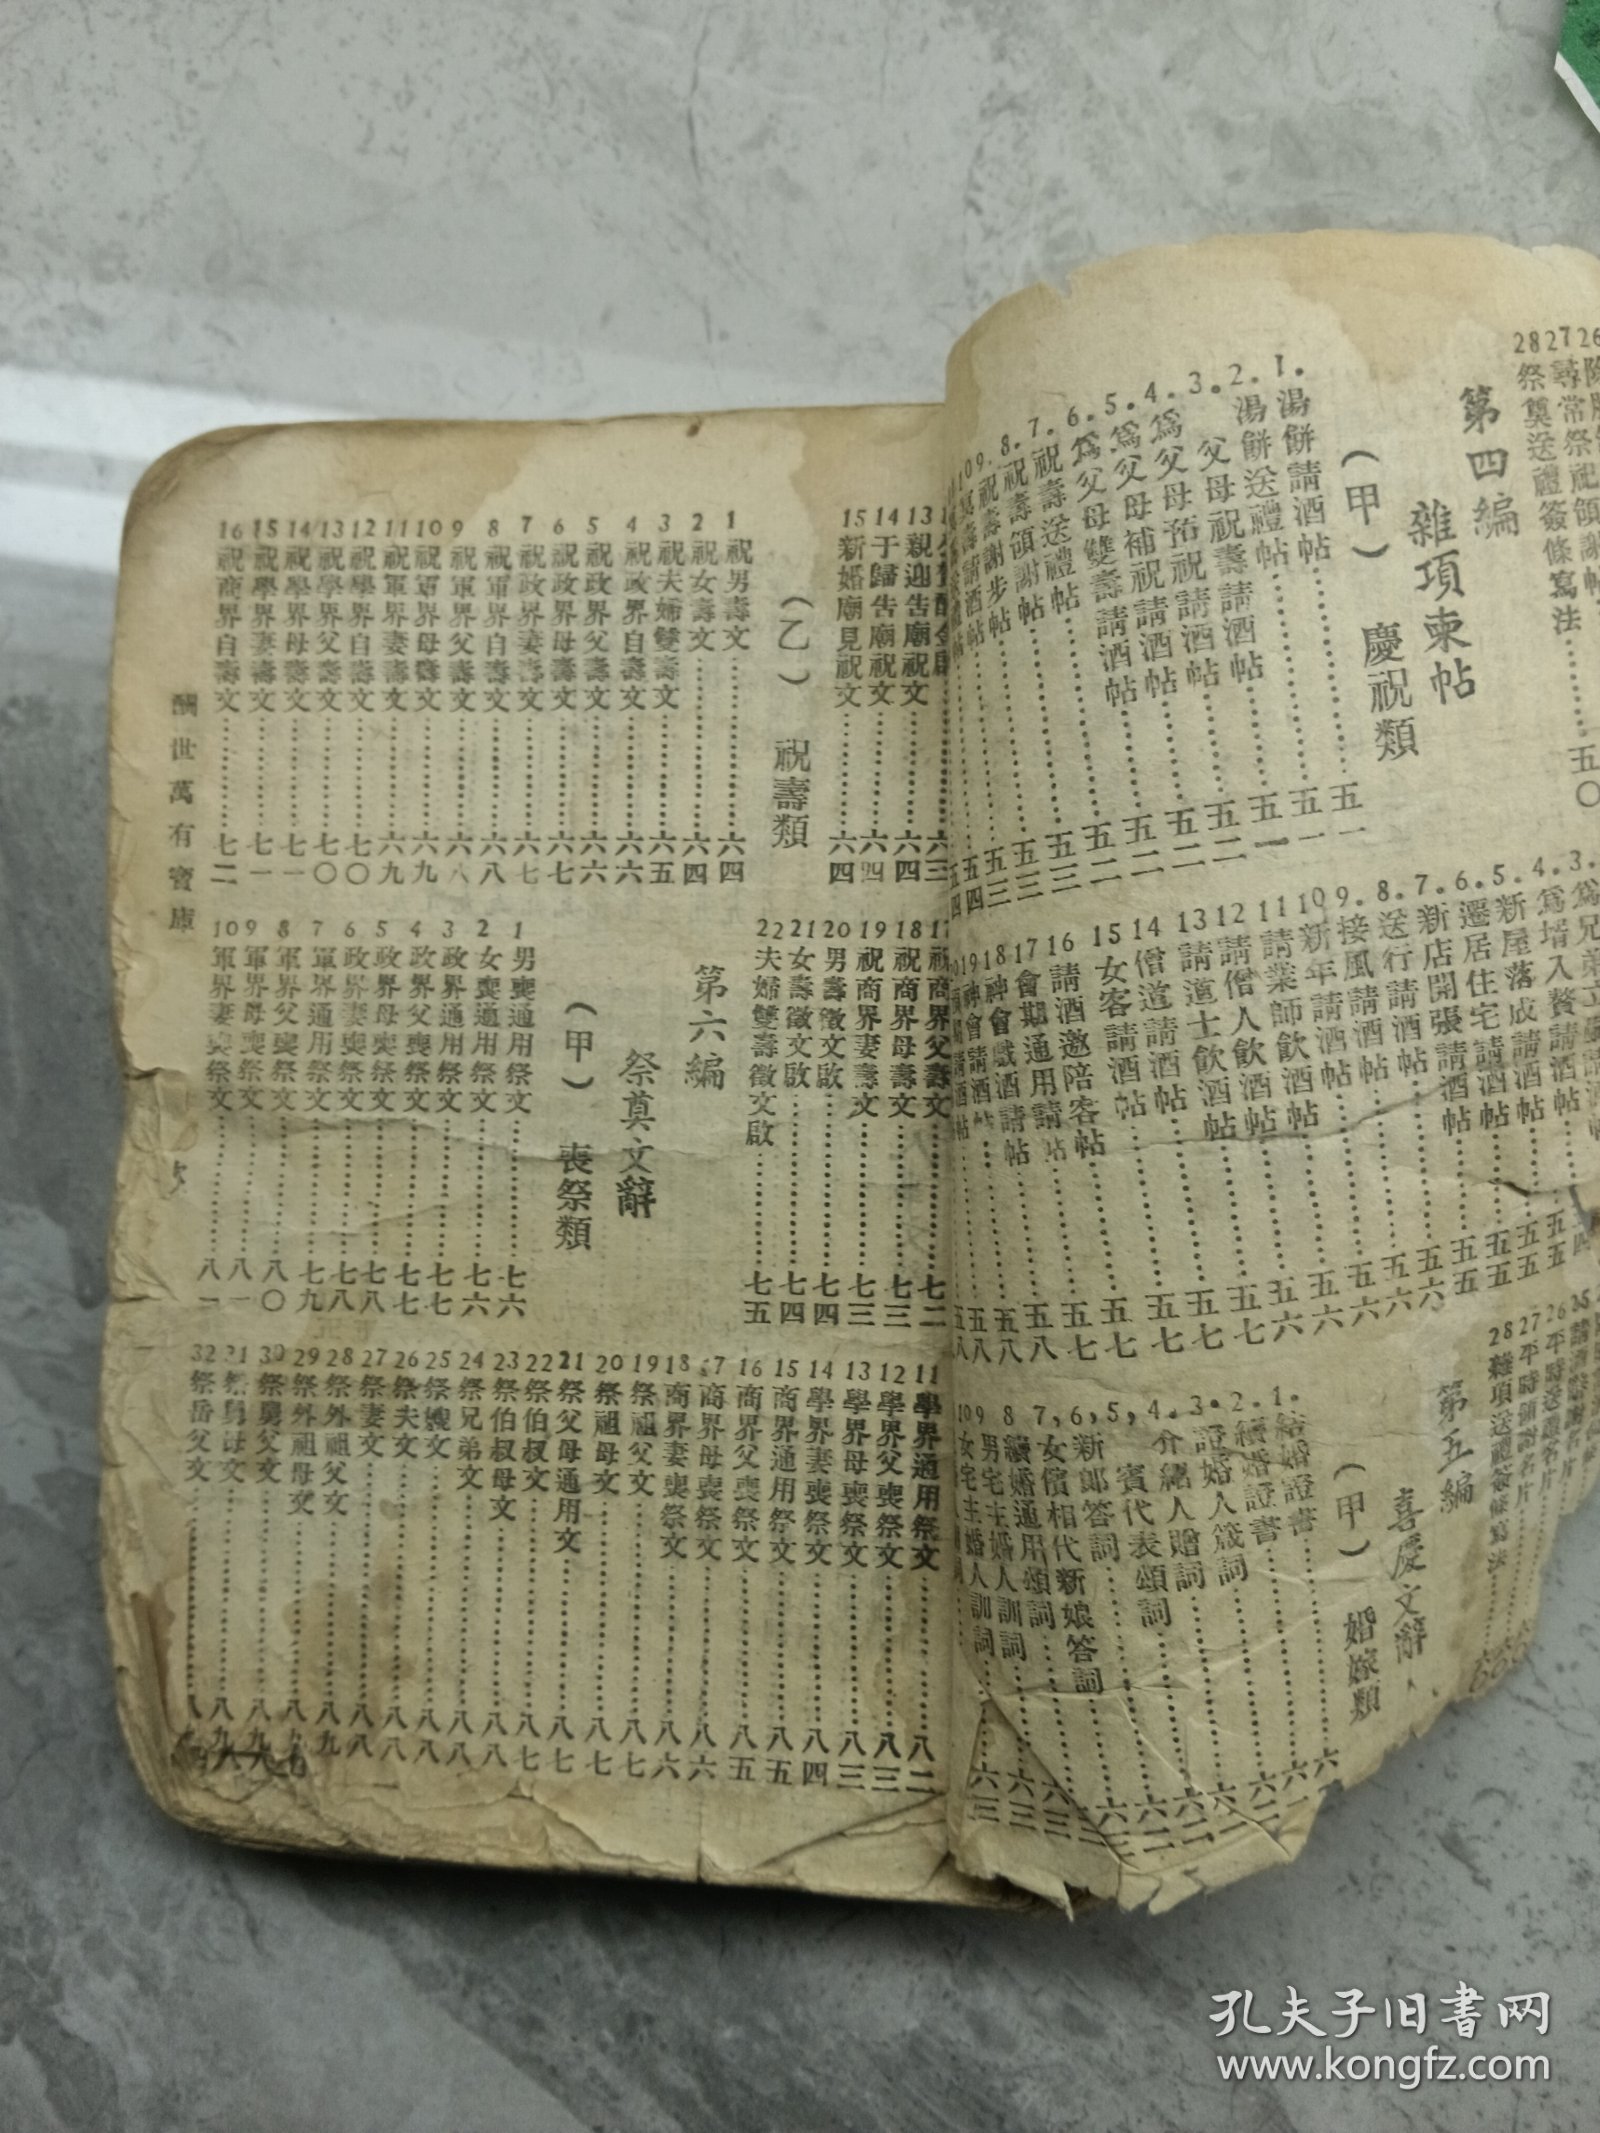 28祭奠送禮簽條寫法……五〇
第四編
雜項柬帖
(甲) 慶祝類
1.湯餅請酒帖……五一
2.湯餅送禮帖……五一
3.父母祝壽請酒帖……五一
4.爲父母預祝請酒帖……五二
5.爲父母補祝請酒帖……五二
6.爲父母雙壽請酒帖……五二
7.祝壽送禮帖……五三
8.祝壽領謝帖……五三
9.祝壽謝步帖……五三
4.爲壻入贅請酒帖……五五
5.新屋落成請酒帖……五五
6.遷居住宅請酒帖……五五
7.新店開張請酒帖……五五
8.送行請酒帖……五六
9.接風請酒帖……五六
10新年請酒帖……五六
11請業師飲酒帖……五六
12請僧人飲酒帖……五七
13請道士飲酒帖……五七
14僧道請酒帖……五七
15女客請酒帖……五七
16請酒邀陪客帖……五七
17會期通用請帖……五八
18神會戲酒請帖……五八
19神會請酒帖……五八
26平時送禮名片
27平時領謝名片
28雜項送禮簽條寫法
第五編
喜慶文辭
(甲) 婚嫁類
1.結婚證書
2.續婚證書
3.證婚人箴詞
4.介紹人贈詞
5,賓代表頌詞
6,新郎答詞
7,女儐相代新娘答詞
8 續婚通用頌詞
9 男宅主婚人訓詞……六三
10女宅主婚人訓詞……六三
13親迎告廟祝文……六四
14于歸告廟祝文……六四
15新婚廟見祝文……六四
(乙) 祝壽類
1 祝男壽文……六四
2 祝女壽文……六四
3 祝夫婦雙壽文……六五
4 祝政界自壽文……六六
5 祝政界父壽文……六六
6 祝政界母壽文……六七
7 祝政界妻壽文……六七
8 祝軍界自壽文……六八
9 祝軍界父壽文……六八
10祝軍界母壽文……六九
11祝軍界妻壽文……六九
12祝學界自壽文……七〇
13祝學界父壽文……七〇
14祝學界母壽文……七一
15祝學界妻壽文……七一
16祝商界自壽文……七二
17祝商界父壽文……七二
18祝商界母壽文……七三
19祝商界妻壽文……七三
20男壽徵文啟……七四
21女壽徵文啟……七四
22夫婦雙壽徵文啟……七五
第六編
祭奠文辭
(甲) 喪祭類
1 男喪通用祭文……七六
2 女喪通用祭文……七六
3 政界通用祭文……七七
4 政界父喪祭文……七七
5 政界母喪祭文……七八
6 政界妻喪祭文……七八
7 軍界通用祭文……七九
8 軍界父喪祭文……八〇
9 軍界母喪祭文……八一
10軍界妻喪祭文……八一
11學界通用祭文……八二
12學界父喪祭文……八三
13學界母喪祭文……八三
14學界妻喪祭文……八四
15商界通用祭文……八五
16商界父喪祭文……八五
17商界母喪祭文……八六
18商界妻喪祭文……八六
19祭祖父文……八七
20祭祖母文……八七
21祭父母通用文……八七
22祭伯叔文……八七
23祭伯叔母文……八八
24祭兄弟文……八八
25祭嫂文……八八
26祭夫文……八八
27祭妻文……八八
28祭外祖父文……八九
29祭外祖母文……八九
30祭舅父文……八九
31祭舅母文……八九
32祭岳父文
酬世萬有寶庫
孔夫子旧书网
www.kongfz.com